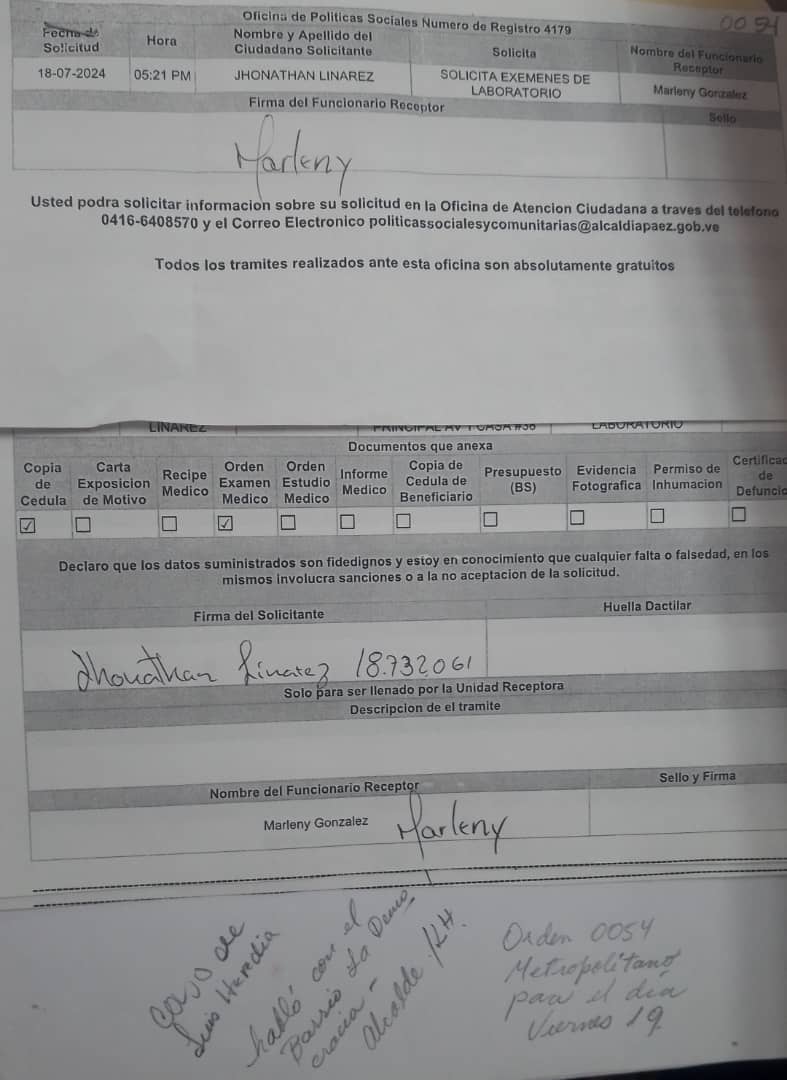 Oficina de Politicas Sociales Numero de Registro 4179
0054
Fecha de Solicitud Hora Nombre y Apellido del Ciudadano Solicitante Solicita Nombre del Funcionario Receptor
18-07-2024 05:21 PM JHONATHAN LINAREZ SOLICITA EXEMENES DE LABORATORIO Marleny Gonzalez
Firma del Funcionario Receptor Sello
Marleny
Usted podra solicitar informacion sobre su solicitud en la Oficina de Atencion Ciudadana a traves del telefono
0416-6408570 y el Correo Electronico politicassocialesycomunitarias@alcaldiapaez.gob.ve
Todos los tramites realizados ante esta oficina son absolutamente gratuitos
LINAREZ PRINCIPAL AV 1 CASA #36 LABORATORIO
Documentos que anexa
Copia de Cedula Carta Exposicion de Motivo Recipe Medico Orden Examen Medico Orden Estudio Medico Informe Medico Copia de Cedula de Beneficiario Presupuesto (BS) Evidencia Fotografica Permiso de Inhumacion Certificac de Defuncio
Declaro que los datos suministrados son fidedignos y estoy en conocimiento que cualquier falta o falsedad, en los
mismos involucra sanciones o a la no aceptacion de la solicitud.
Firma del Solicitante Huella Dactilar
Jhonathan Linarez 18.732.061
Solo para ser llenado por la Unidad Receptora
Descripcion de el tramite
Nombre del Funcionario Receptor Sello y Firma
Marleny Gonzalez Marleny
Caso de
Luis Heredia
habló con el
Barrio La Demo
cracia -
Alcalde
Orden 0054
Metropolitano
para el día
Viernes 19